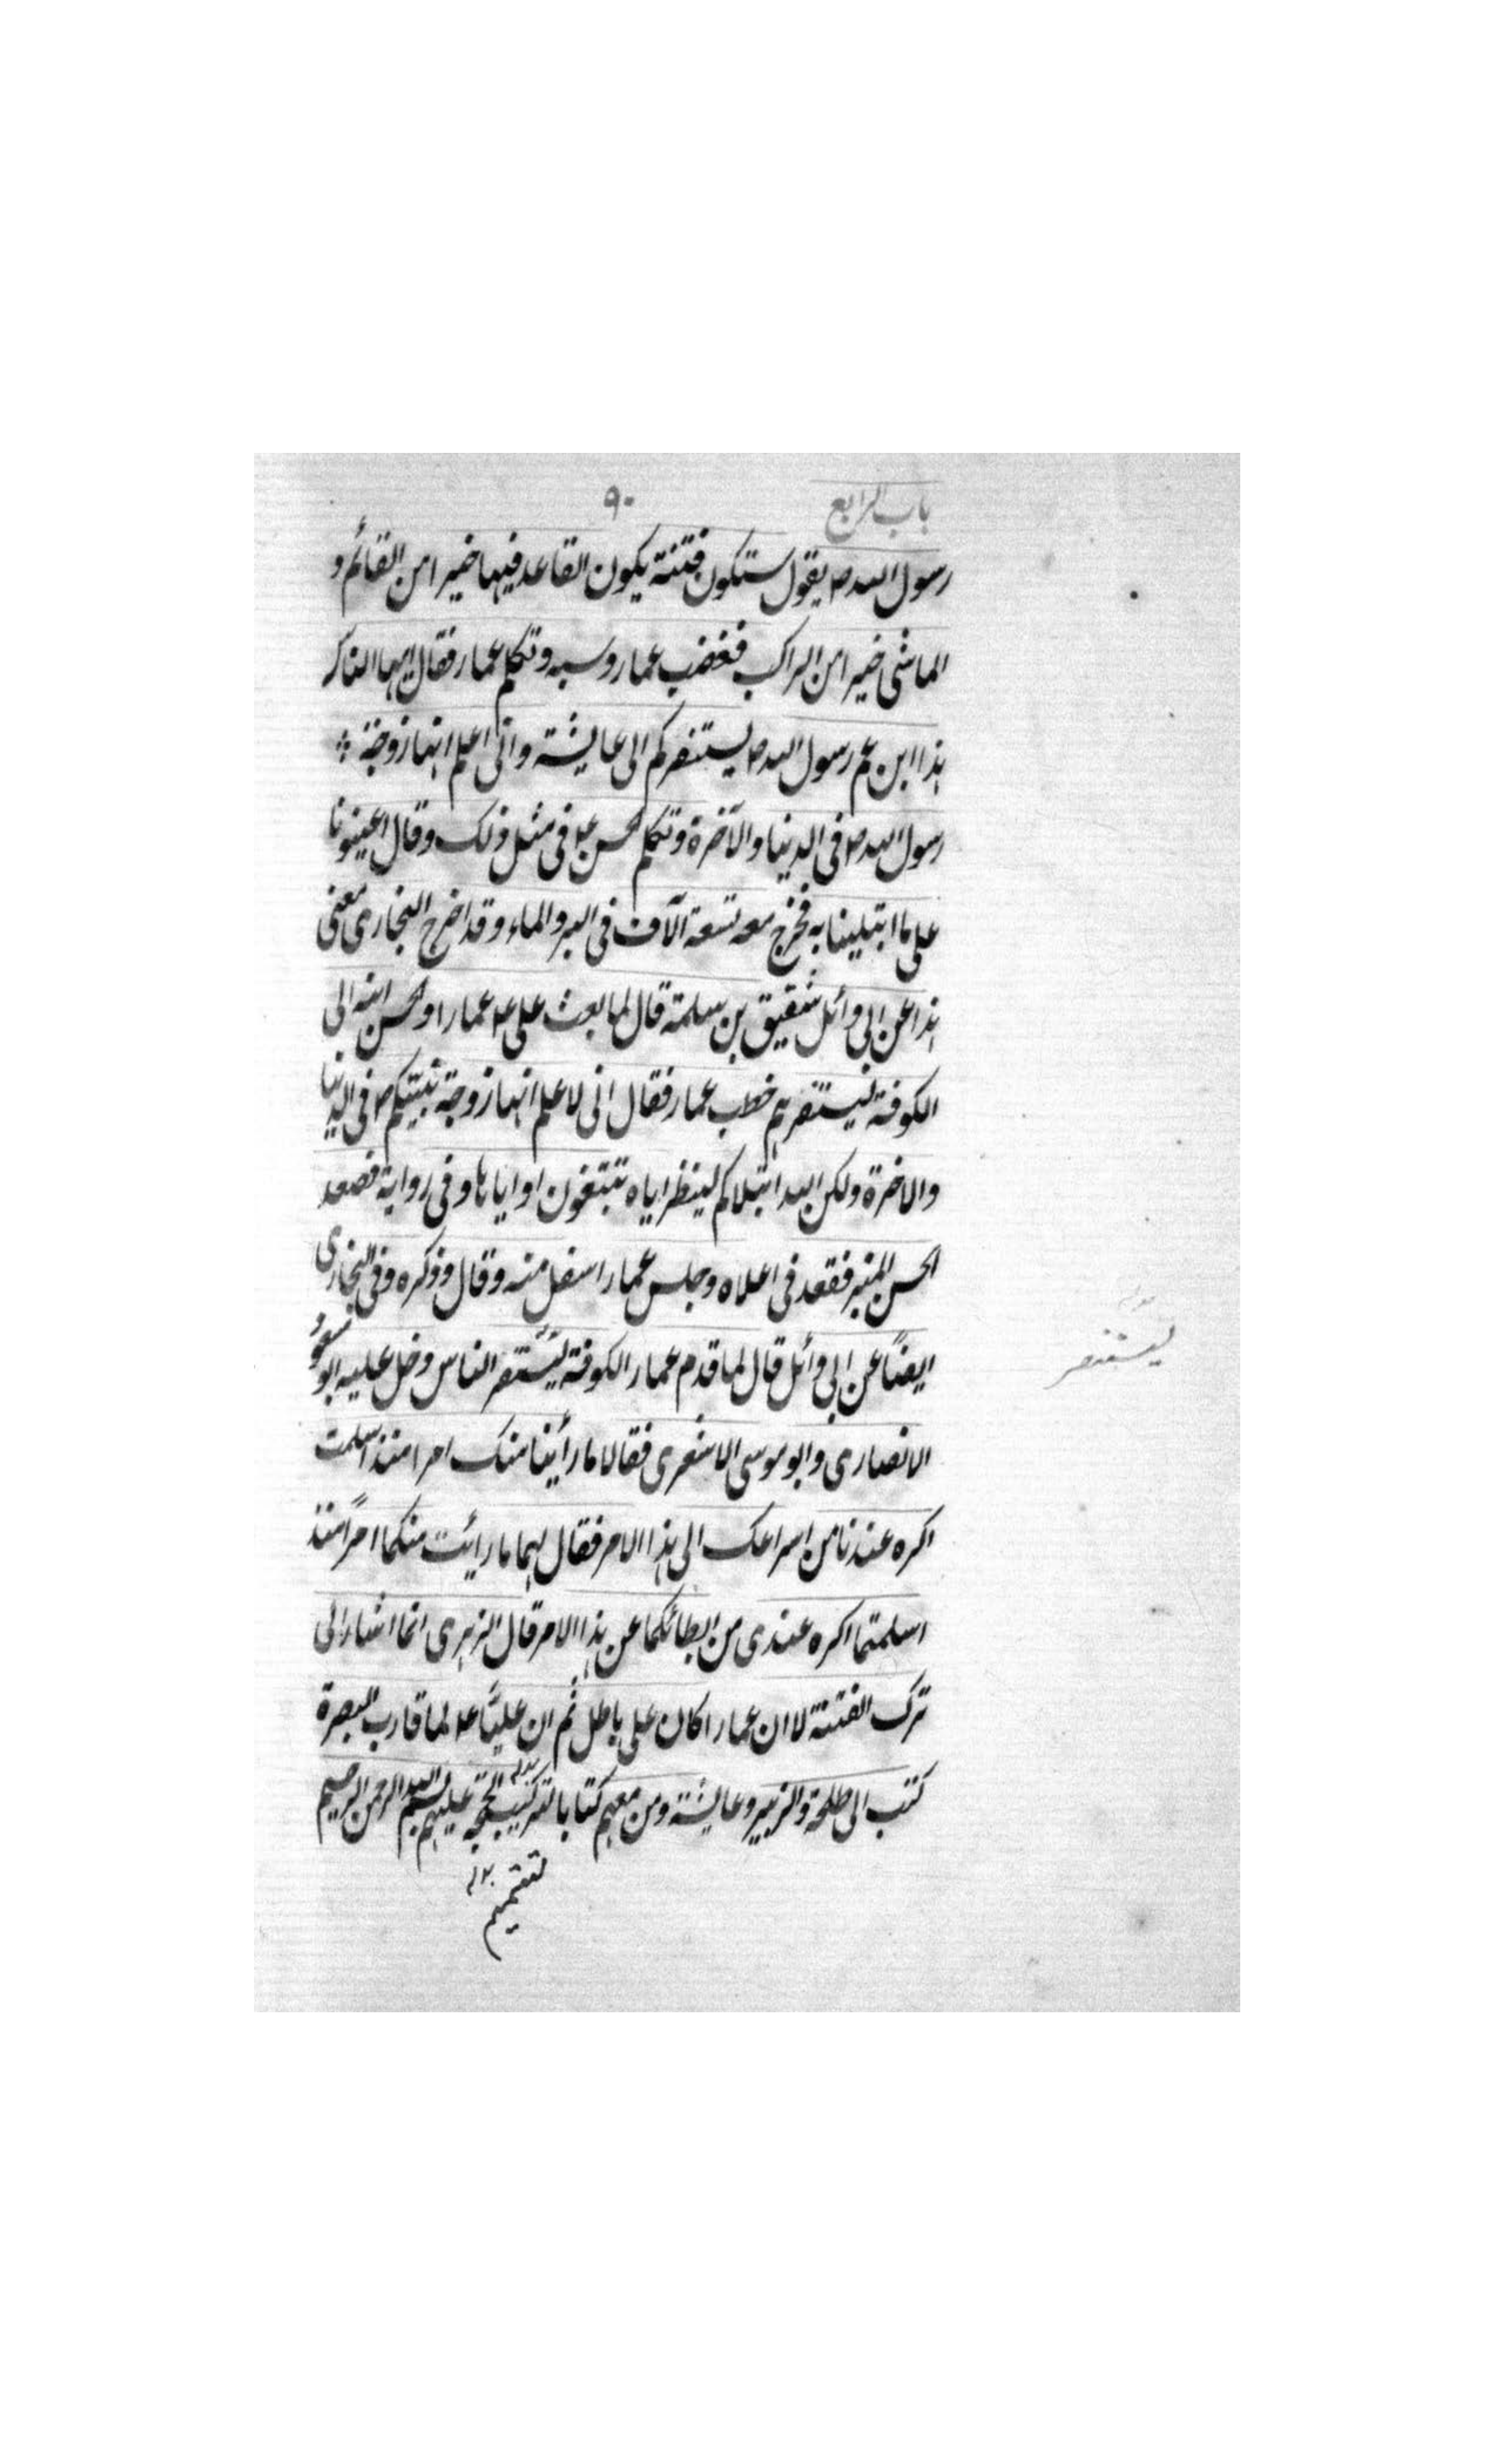 باب الرابع ٩٠
رسول الله ص يقول ستكون فتنة يكون القاعد فيها خيرا من القائم و
الماشى خيرا من الراكب فغضب عمار وسبه وتكلم عمار فقال ايها الناس
هذا ابن عم رسول الله ص يستنفركم الى عايشة وانى اعلم انها زوجة
رسول الله ص فى الدنيا والآخرة وتكلم الحسن ع فى مثل ذلك وقال اعينونا
على ما ابتلينا به فخرج معه تسعة الآف فى البر والماء وقد اخرج البخارى معنى
هذا عن ابى وائل شقيق بن سلمة قال لما بعث على ع عمارا والحسن ابنه الى
الكوفة ليستنفرهم خطب عمار فقال انى لاعلم انها زوجة نبيكم ص فى الدنيا
والاخرة ولكن الله ابتلاكم لينظر اياه تتبعون او اياها وفى رواية فصعد
الحسن المنبر فقعد فى اعلاه وجلس عمار اسفل منه وقال وذكره وفى البخارى
ايضًا عن ابى وائل قال لما قدم عمار الكوفة ليستنفر الناس دخل عليه ابو مسعود
ليستنفر
الانصارى وابو موسى الاشعرى فقالا ما رأينا منك امرا منذ اسلمت
اكره عندنا من اسراعك الى هذا الامر فقال لهما ما رائت منكما امرًا منذ
اسلمتما اكره عندى من ابطائكما عن هذا الامر قال الزهرى انما اشار الى
ترك الفتنة لا ان عمارا كان على باطل ثم ان عليًا ع لما قارب البصرة
كتب الى طلحة والزبير وعايشة ومن معهم كتابا لتركيب الحجة عليهم بسم الله الرحمن الرحيم